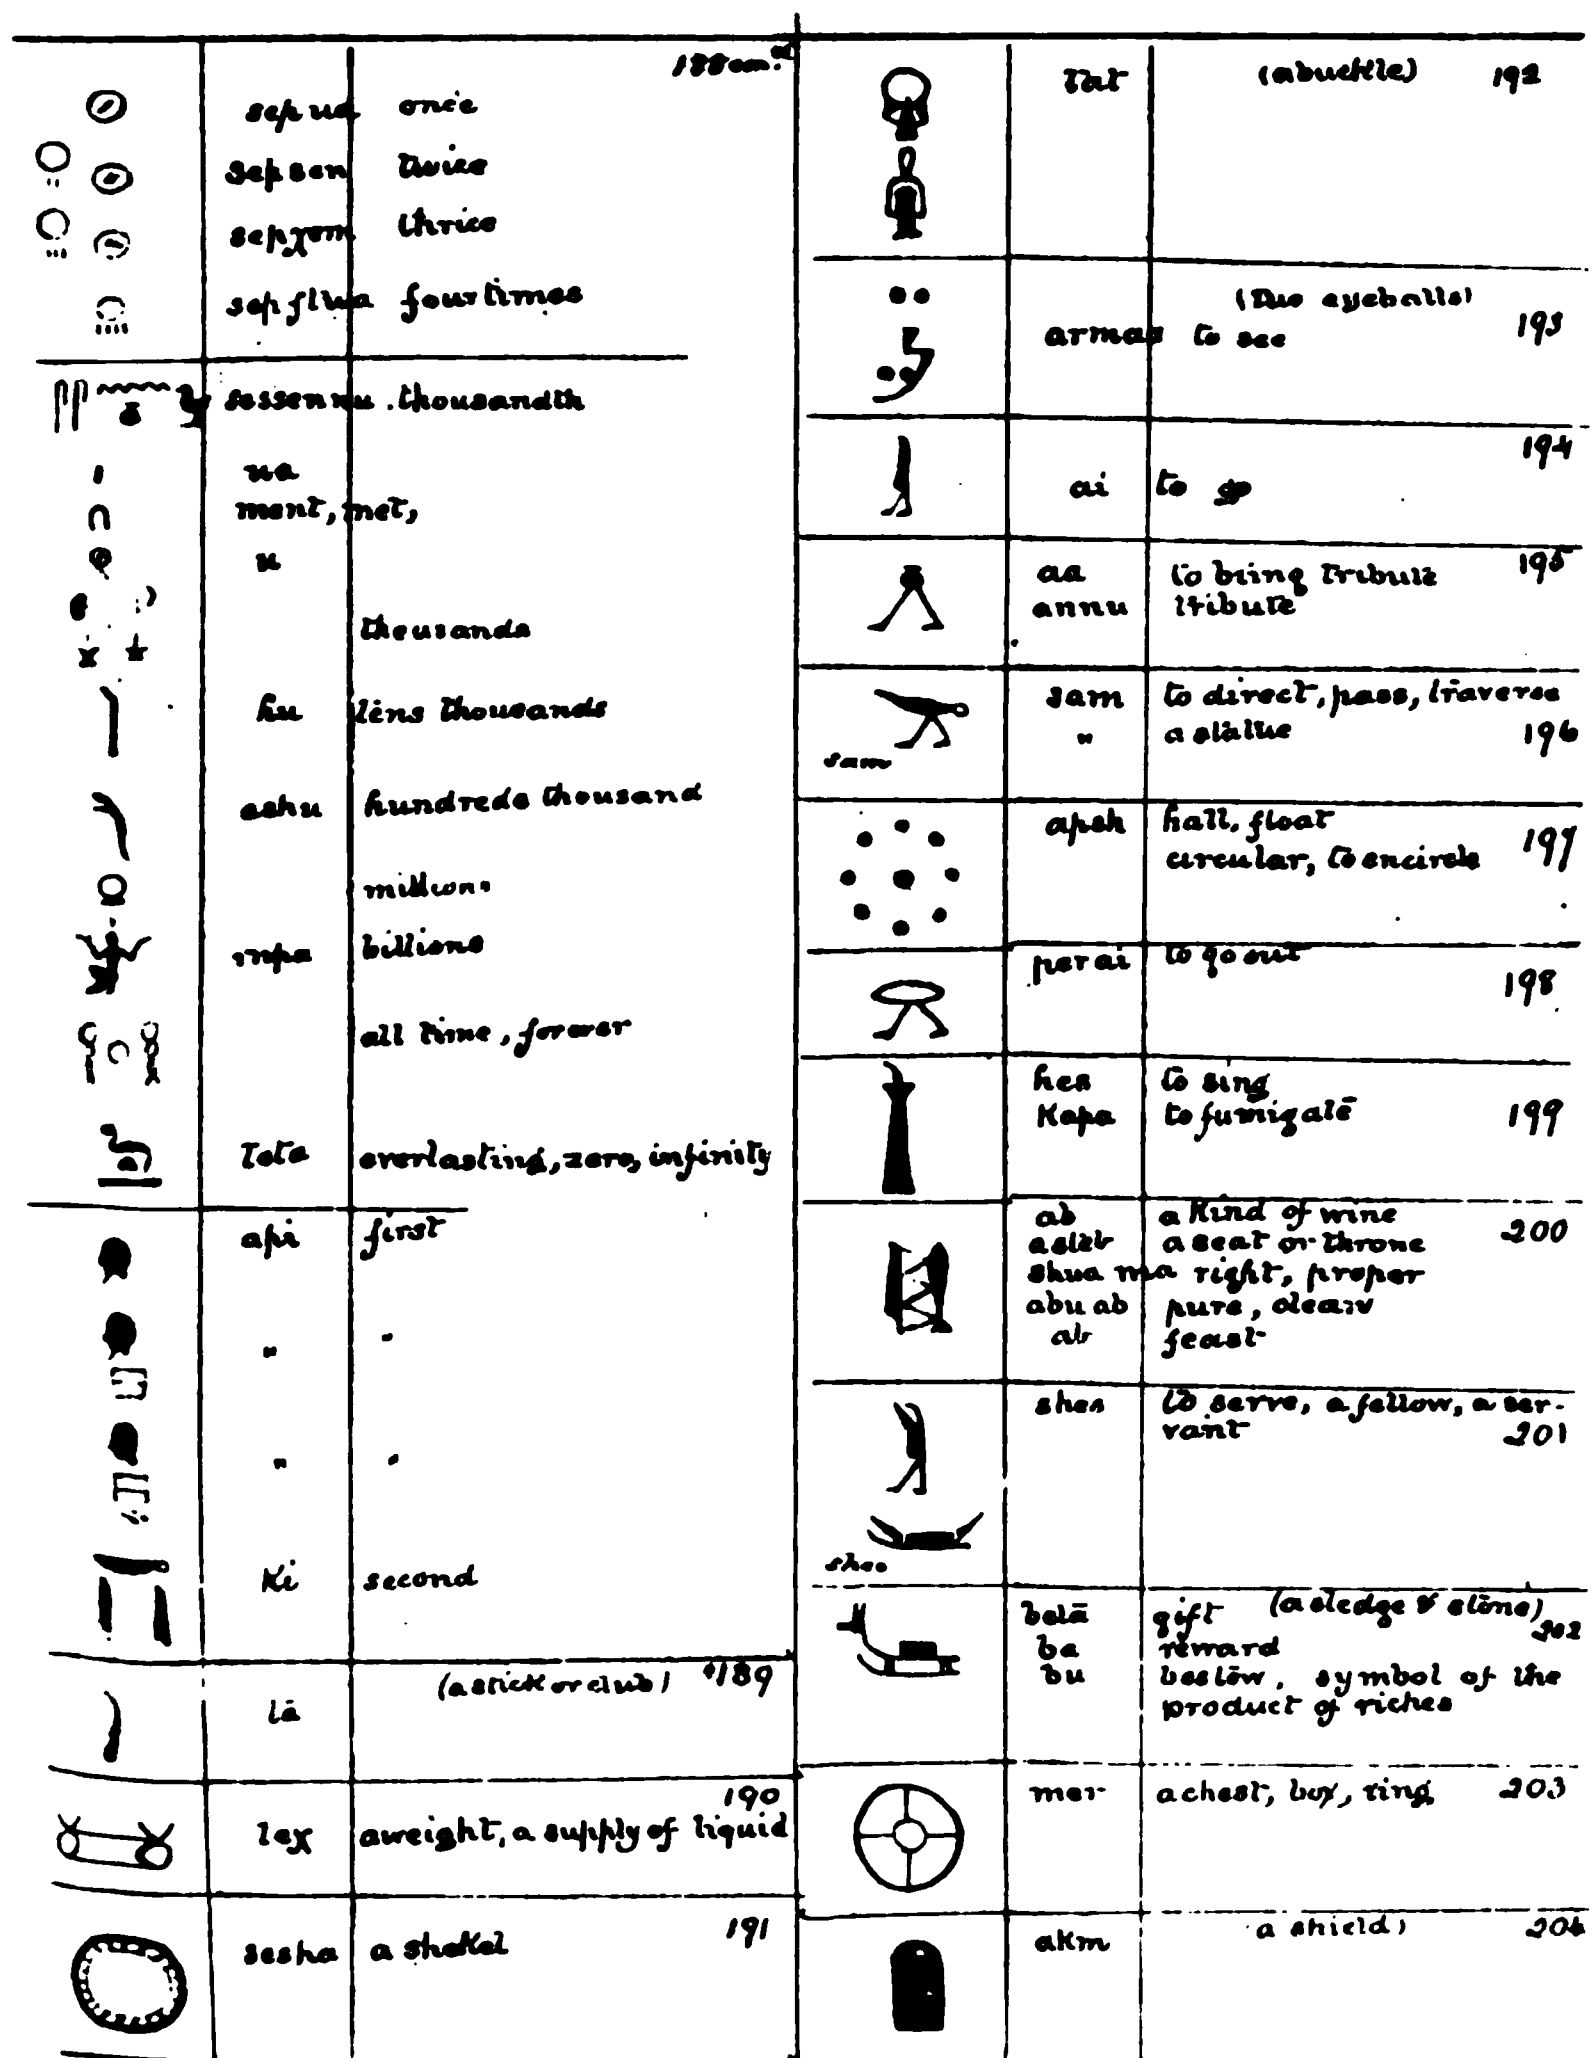 188 con.d
sep ua once
sep sen twice
sep χom thrice
sep ftua four times
sessennu . thousandth
ua
ment, met,
u
thousands
hu tens thousands
ashu hundreds thousand
millions
billions
all time, forever
Teta everlasting, zero, infinity
api first
" "
" "
Ki second
(a stick or club) 189
ta
190
teχ a weight, a supply of liquid
191
sesha a shekel
Tat (a buckle) 192
(Two eyeballs)
armas to see 193
194
ai to go
aa to bring tribute 195
annu tribute
sam to direct, pass, traverse
" a statue 196
sam
apsh hall, float
circular, to encircle 197
per ai to go out
198
hes to sing
Kapa to fumigate 199
ab a Kind of wine
a seat or throne 200
shua ma right, proper
abu ab pure, clean
ab feast
shes to serve, a fellow, a ser-
vant 201
shes
beta gift (a sledge & stone) 202
ba reward
bu bestow, symbol of the
product of riches
mer a chest, box, ring, 203
akm a shield) 204